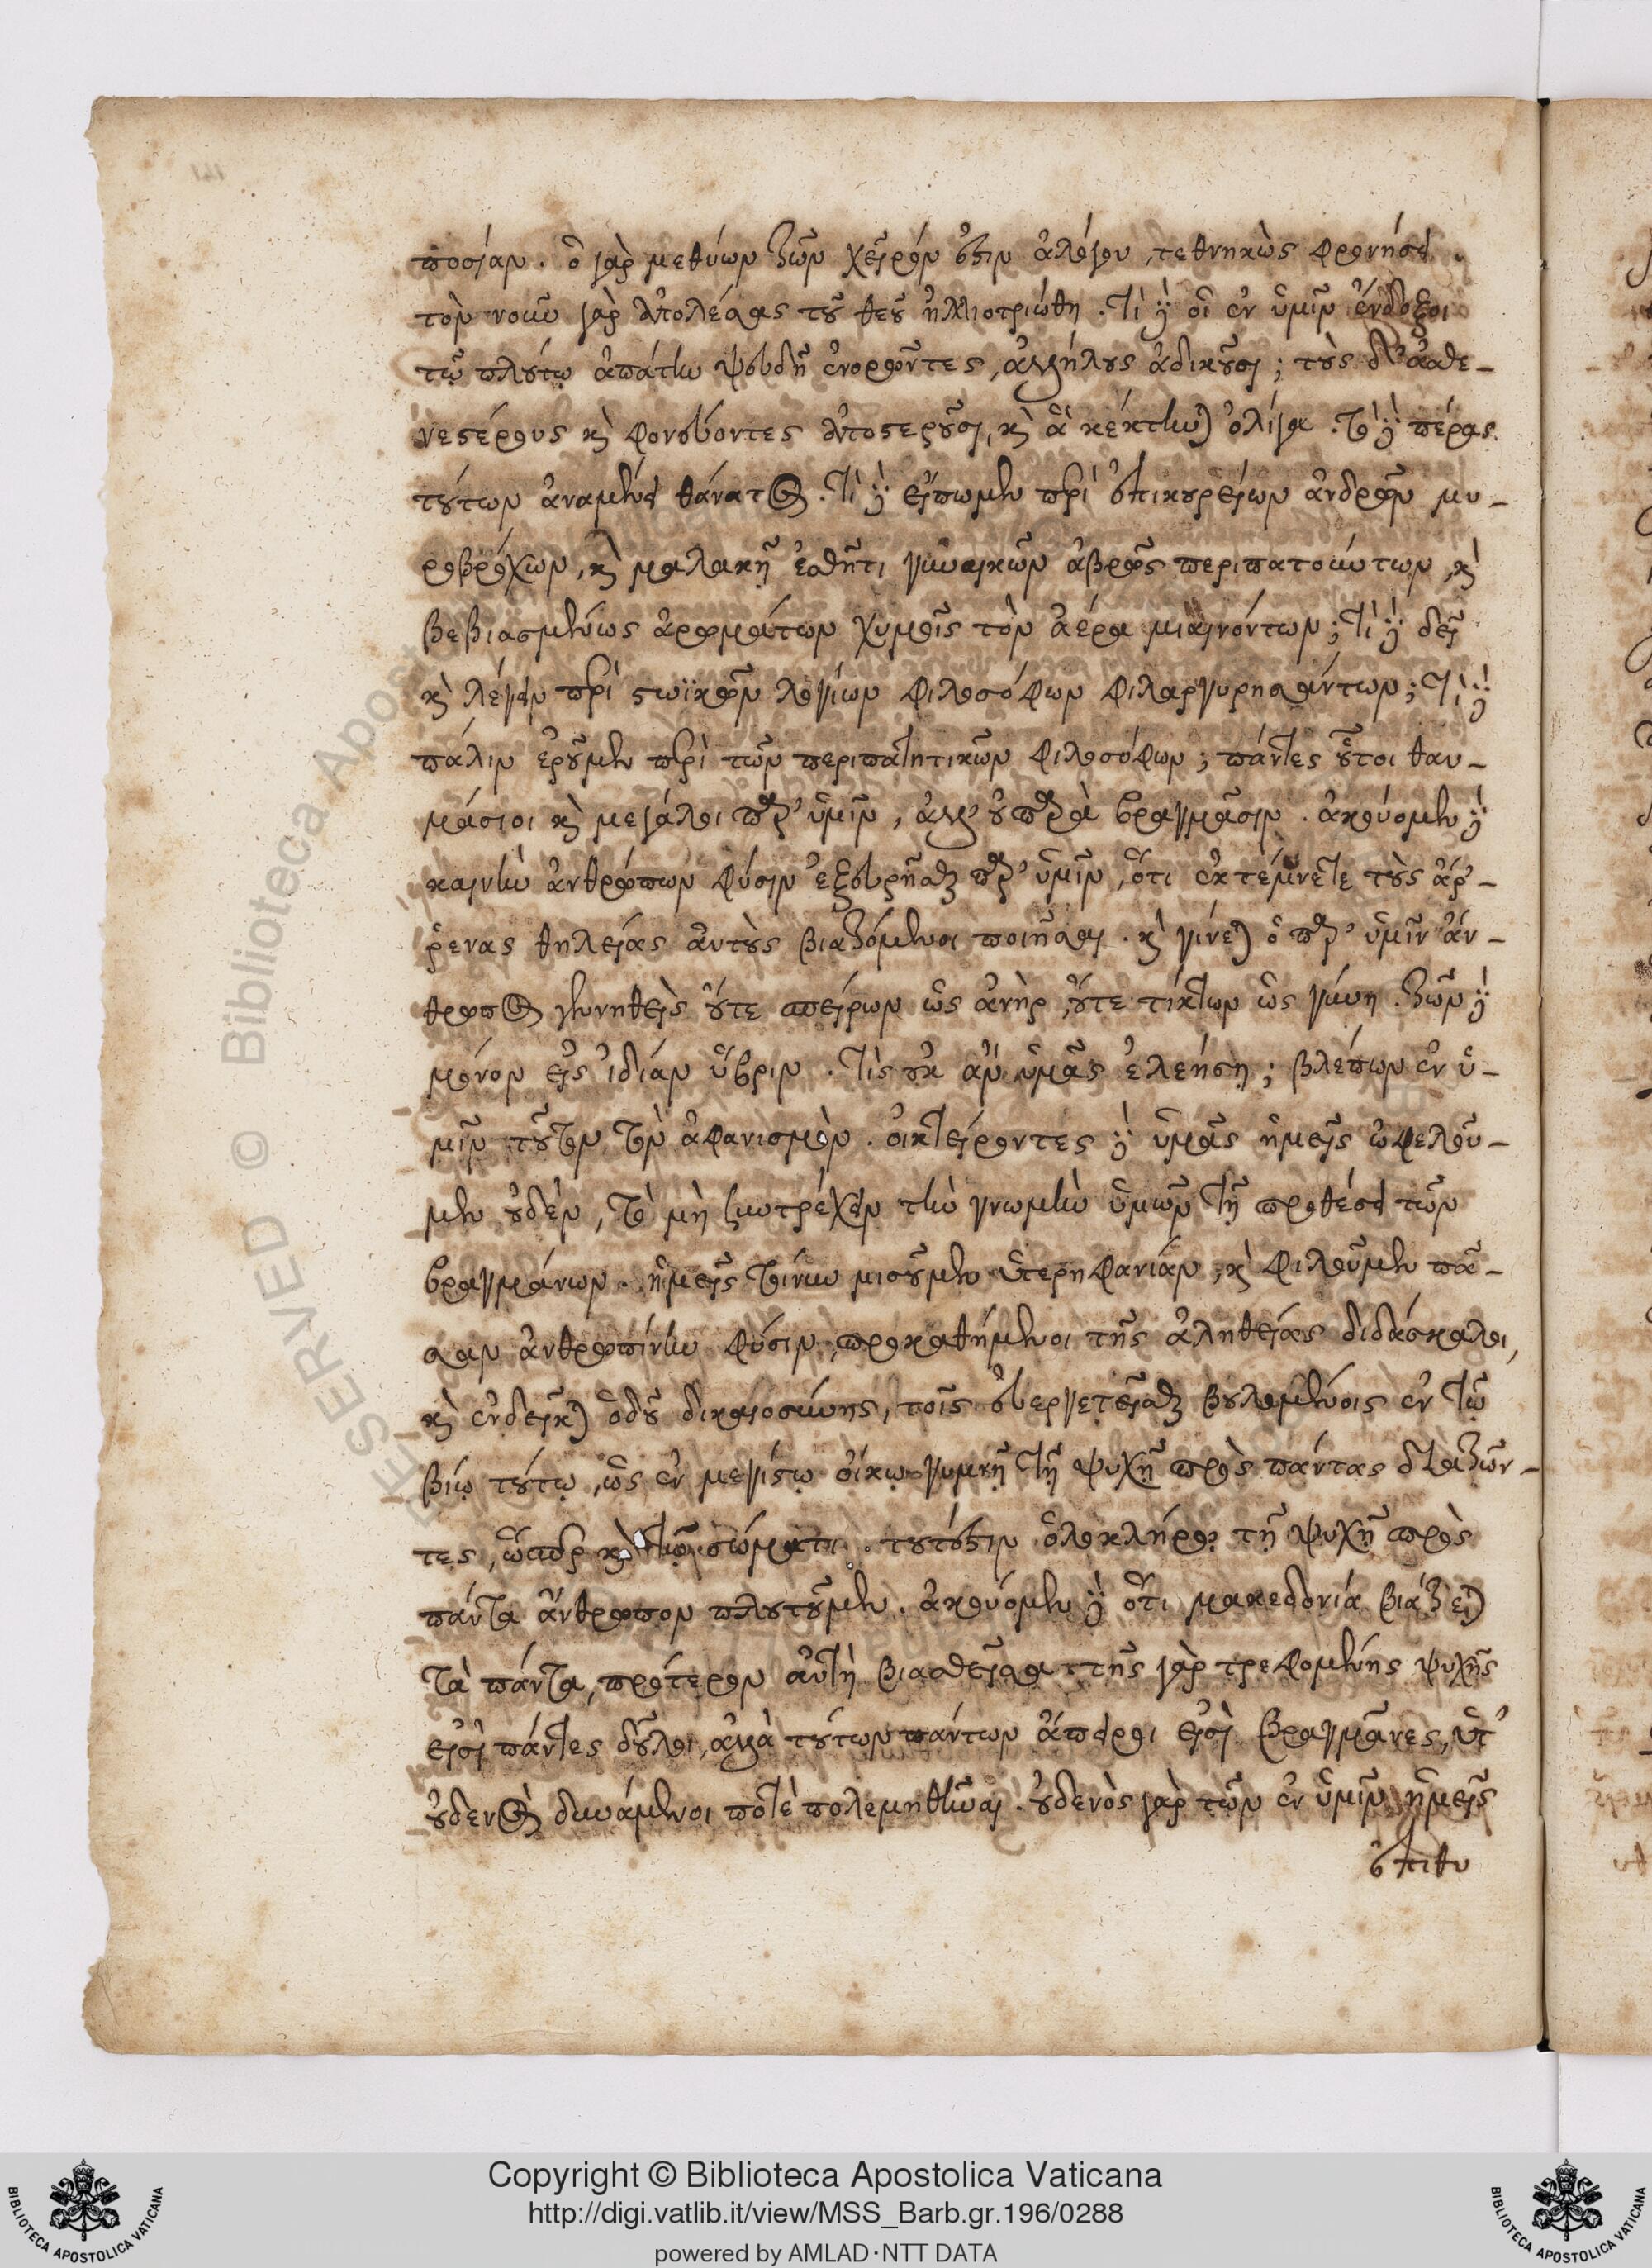 ποσίαν. ὁ γὰρ μεθύων ζῶν χεῖρόν ἐστιν ἀλόγου, τεθνηκὼς φρονήσει.
τὸν νοῦν γὰρ ἀπολέσας τοῦ θεοῦ ἠλλοτριώθη. τί δὲ οἱ ἐν ὑμῖν ἔνδοξοι
τῷ πλούτῳ ἀπάτην ψευδῆ ἐνορῶντες, ἀλλήλους ἀδικοῦσι; τοὺς δ' ἀσθε-
νεστέρους καὶ φονεύοντες ἀποστεροῦσι, καὶ ἃ κέκτηνται ὀλίγα. τὸ δὲ πέρας
τούτων ἀναμένει θάνατος. τί δὲ εἴπωμεν περὶ ἐπικουρείων ἀνδρῶν μυ-
ροβρόχων, καὶ μαλακῇ ἐσθῆτι γυναικῶν ἁβρῶς περιπατούντων, καὶ
βεβιασμένως ἀρωμάτων χυμοῖς τὸν ἀέρα μιαινόντων; τί δὲ δεῖ
καὶ λέγειν περὶ στωϊκῶν λογίων φιλοσόφων φιλαργυρησάντων; τί δὲ
πάλιν ἐροῦμεν περὶ τῶν περιπατητικῶν φιλοσόφων; πάντες οὗτοι θαυ-
μάσιοι καὶ μεγάλοι παρ' ὑμῖν, ἀλλ' οὐ παρὰ βραγμᾶσιν. ἀκούομεν δὲ
καινὴν ἀνθρώπων φύσιν ἐξευρῆσθαι παρ' ὑμῖν, ὅτι ἐκτέμνετε τοὺς ἄῤ-
ῥενας θηλείας αὐτοὺς βιαζόμενοι ποιῆσαι. καὶ γίνεται ὁ παρ' ὑμῖν ἄν-
θρωπος γεννηθεὶς οὔτε σπείρων ὡς ἀνὴρ, οὔτε τίκτων ὡς γυνή. ζῶν δὲ
μόνον εἰς ἰδίαν ὕβριν. τίς οὐκ ἂν ὑμᾶς ἐλεήσῃ; βλέπων ἐν ὑ-
μῖν τοῦτον τὸν ἀφανισμόν. οἰκτείροντες δὲ ὑμᾶς ἡμεῖς ὠφελοῦ-
μεν οὐδέν, τὸ μὴ συντρέχειν τὴν γνωμὴν ὑμῶν τῇ προθέσει τῶν
βραγμάνων. ἡμεῖς τοίνυν μισοῦμεν ὑπερηφανίαν, καὶ φιλοῦμεν πᾶ-
σαν ἀνθρωπίνην φύσιν, προκαθήμενοι τῆς ἀληθείας διδάσκαλοι,
καὶ ἐνδεῖκται ὁδοῦ δικαιοσύνης, τοῖς εὐεργετεῖσθαι βουλομένοις ἐν τῷ
βίῳ τούτῳ, ὡς ἐν μεγίστῳ οἴκῳ γυμνῇ τῇ ψυχῇ πρὸς πάντας διαζῶν-
τες, ὥσπερ καὶ τῷ σώματι. τουτέστιν ὁλοκλήρῳ τῇ ψυχῇ πρὸς
πάντα ἄνθρωπον πλουτοῦμεν. ἀκούομεν δὲ ὅτι μακεδονία βιάζεται
τὰ πάντα, πρότερον αὐτὴ βιασθεῖσα. τῆς γὰρ τρεφομένης ψυχῆς
εἰσὶ πάντες δοῦλοι, ἀλλὰ τούτων πάντων ἄπειροι εἰσὶ βραγμᾶνες, ὑπ'
οὐδενὸς δυνάμενοι ποτὲ πολεμηθῆναι. οὐδενὸς γὰρ τῶν ἐν ὑμῖν ἡμεῖς
ἐπιθυ
Copyright © Biblioteca Apostolica Vaticana
http://digi.vatlib.it/view/MSS_Barb.gr.196/0288
powered by AMLAD·NTT DATA